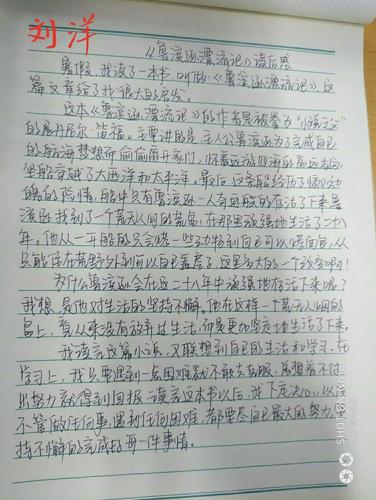 刘洋
《鲁滨逊漂流记》读后感
暑假,我读了一本书,叫做:《鲁滨逊漂流记》,这
篇文章给了我很大的启发。
这本《鲁滨逊漂流记》的作者是被誉为“小说之父”
的丹尼尔·笛福。主要讲的是:主人公鲁滨逊为了完成自己
的航海梦想而偷偷离开家门,怀着远游四海的高远志向,
坐船穿越了大西洋和太平洋。最后,这条船经历了惊心动
魄的险情,船中只有鲁滨逊一人奇迹般的存活了下来。鲁
滨逊找到了一个荒无人间的荒岛,在那里顽强地生活了二十八
年。他从一开始的只会烧一些动物到自己可以烤面包,从
只能住在荒野外到可以自己盖房子,这里多大的一个改变啊!
为什么鲁滨逊会在这二十八年中顽强地存活下来呢?
我想,是他对生活的坚持不懈。他在这样一个荒无人烟的
岛上,看从来没有放弃过生活,而是更加坚定地生活了下来。
我读完这篇小说,又联想到自己的生活和学习。在
学习上,我只要遇到一点困难就不敢去克服,总想着不付
出努力就得到回报。读完这本书以后,我下定决心,以后
不管做任何事,遇到任何困难,都要尽自己最大的努力坚
持不懈的完成好每一件事情。
SHOT ON